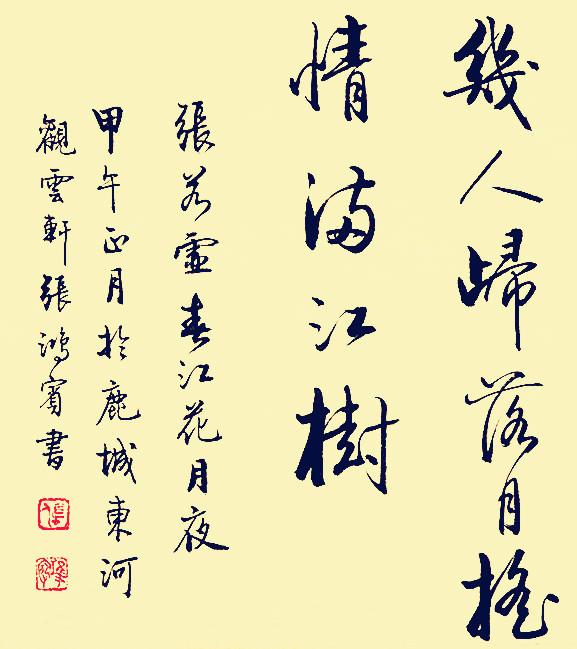 幾人歸落月搖
情满江樹
張若虛春江花月夜
甲午正月於鹿城東河
觀雲軒張鴻賓書